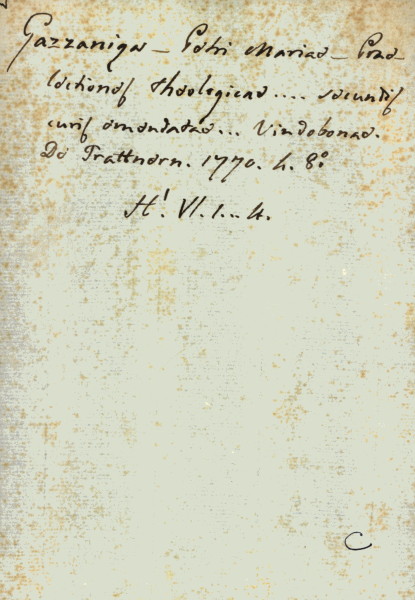 Gazzaniga – Petri Mariae – Prae
lectiones theologicae .... secundis
curis emendatae... Vindobonae.
De Trattnern. 1770. 4. 8º
H¹. VI. 1...4.
C